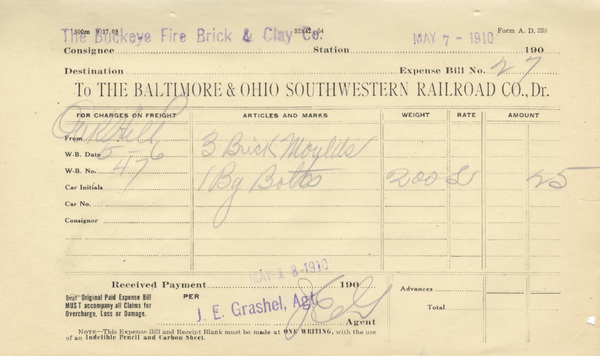 The Buckeye Fire Brick & Clay Co.
Form A. D. 138
Consignee Station MAY 7 - 1910 190
Destination Expense Bill No. 27
To THE BALTIMORE & OHIO SOUTHWESTERN RAILROAD CO., Dr.
FOR CHARGES ON FREIGHT ARTICLES AND MARKS WEIGHT RATE AMOUNT
From Oak Hill 3 Brick Moulds
W-B. Date 5-6
W-B. No. 47 1 Bg Bolts 200 25
Car Initials
Car No.
Consignor
MAY 18-1910
Received Payment 190
Original Paid Expense Bill
MUST accompany all Claims for
Overcharge, Loss or Damage.
PER
J. E. Grashel, Agt.
Agent
Advances
Total
NOTE—This Expense Bill and Receipt Blank must be made at ONE WRITING, with the
use of an Indelible Pencil and Carbon Sheet.